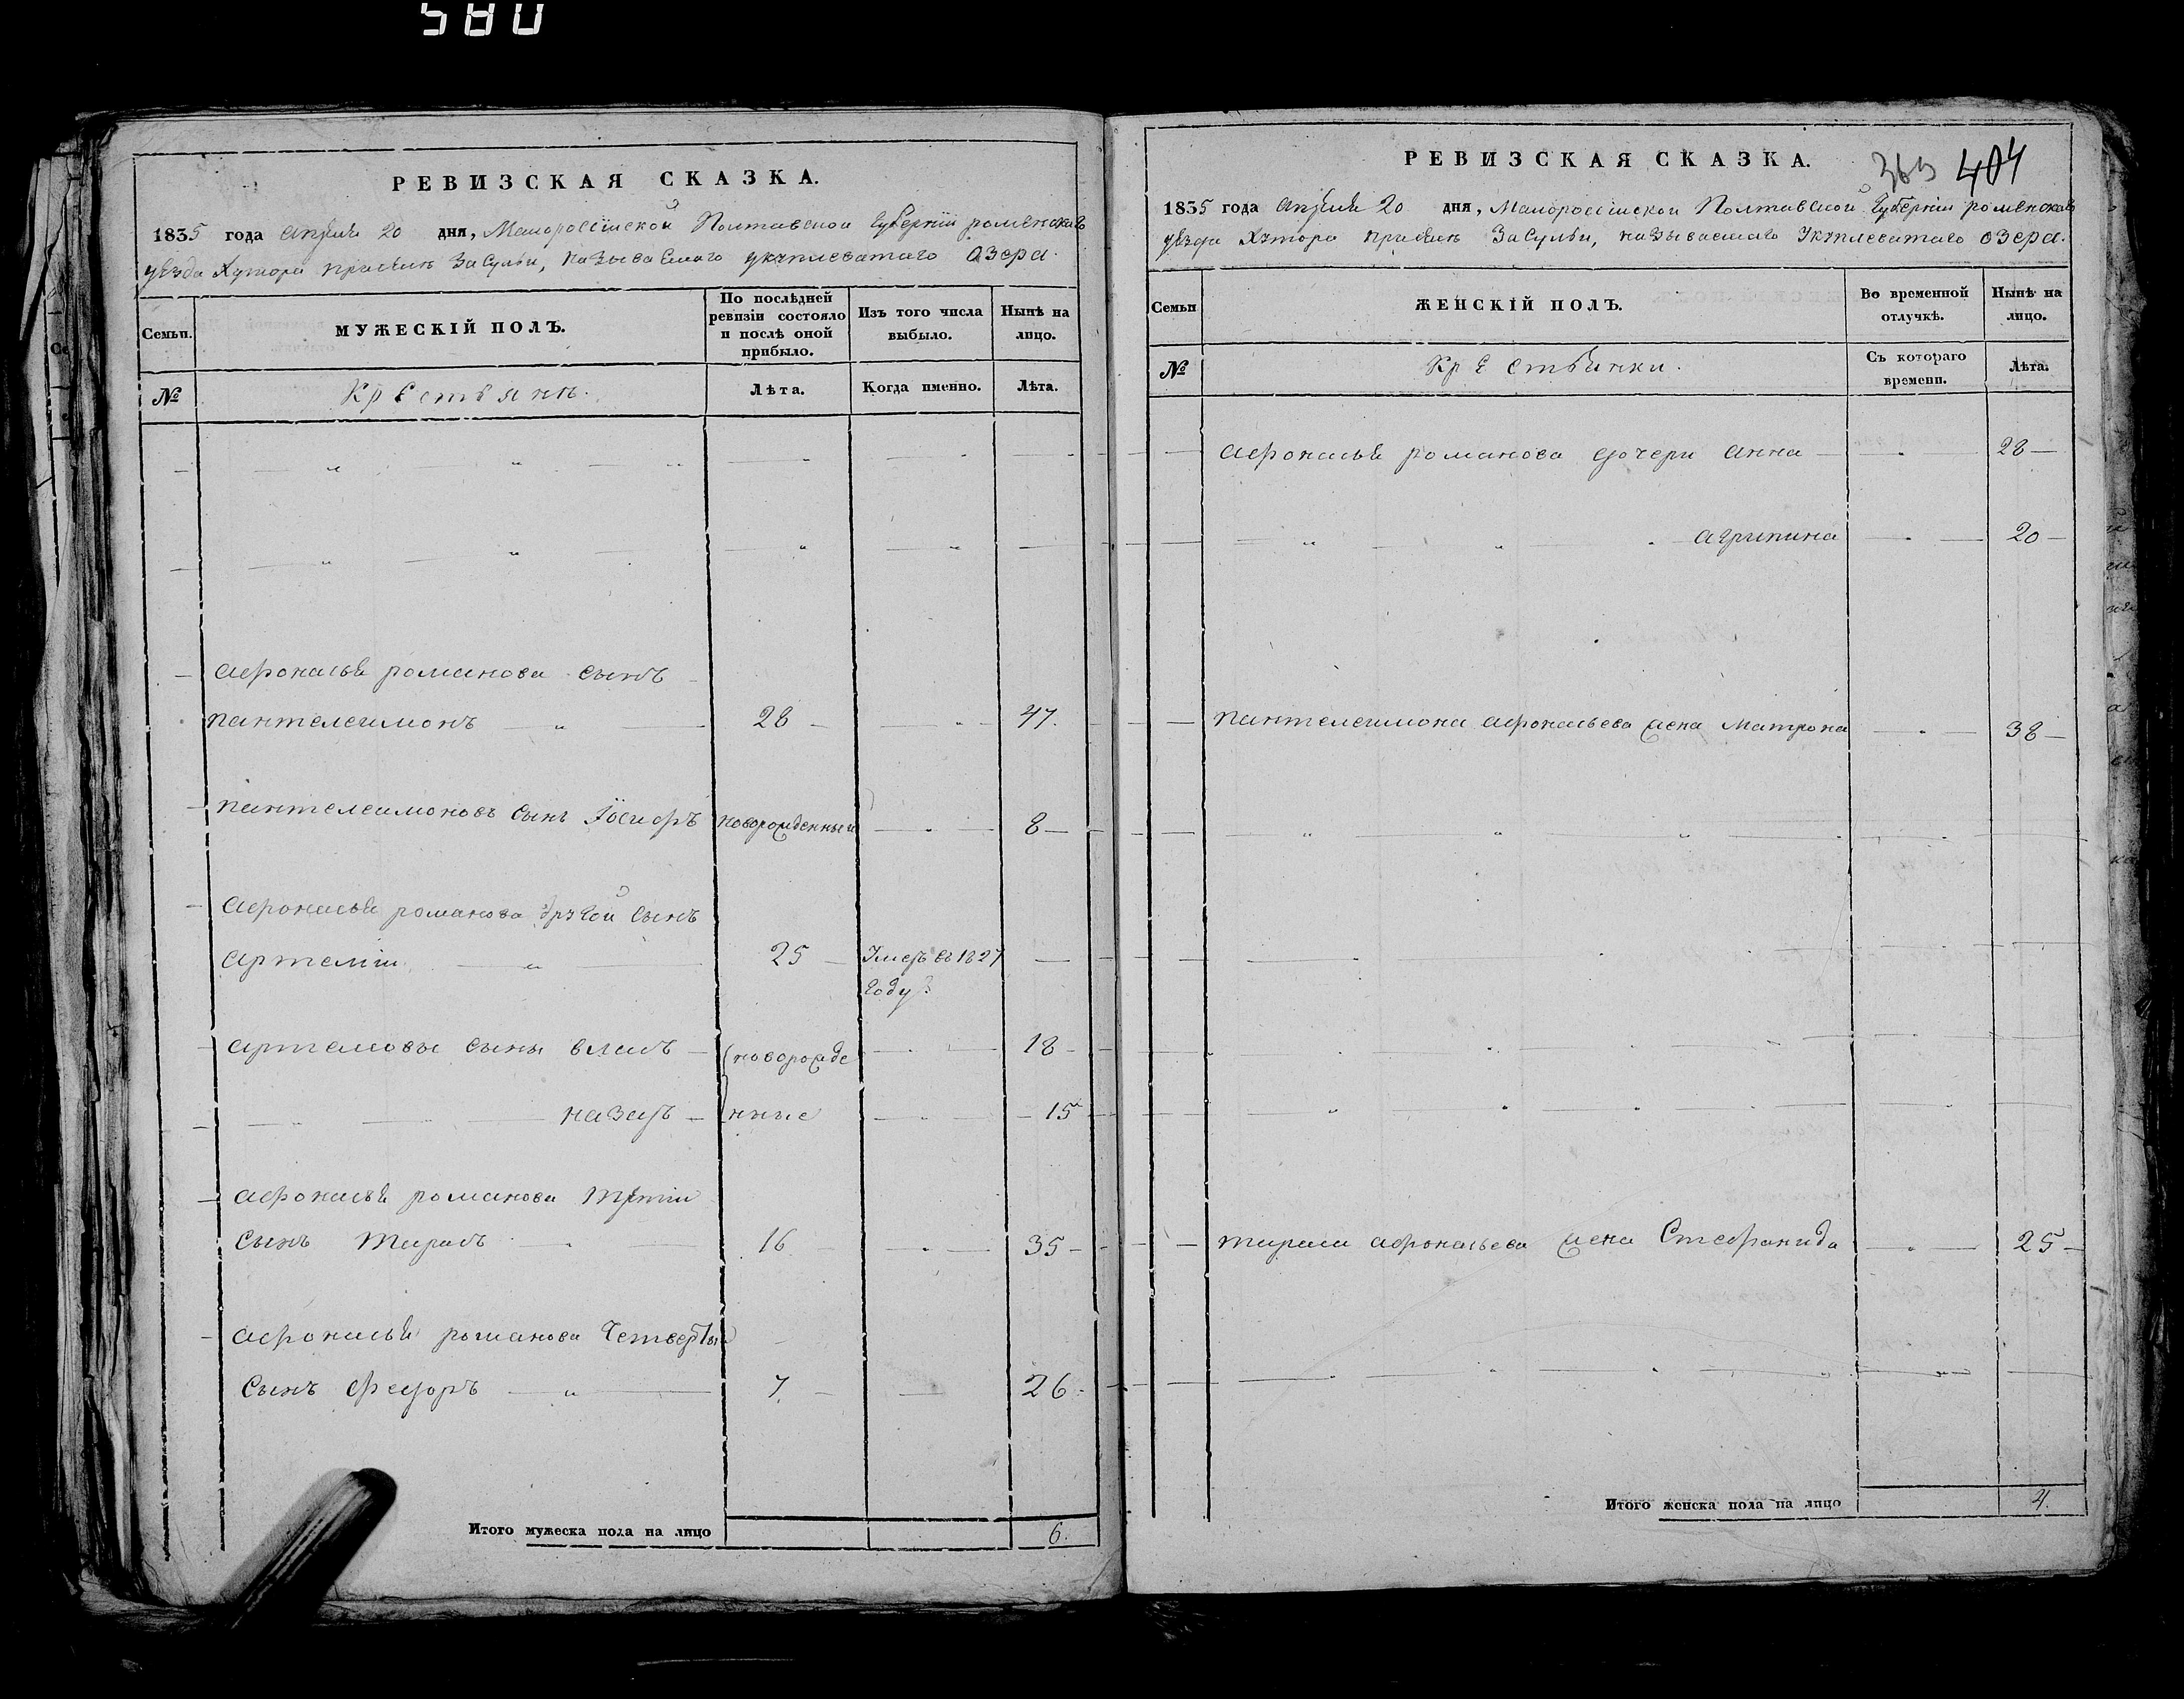 580
РЕВИЗСКАЯ СКАЗКА.
1835 года апреля 20 дня, Малороссiйской Полтавской Губернiи роменскаго
уезда Хутора при земле Засульи, называемаго Укуплеватаго Озера.
Семьи.
МУЖЕСКІЙ ПОЛЪ.
По послѣдней ревизіи состояло и послѣ оной прибыло.
Изъ того числа выбыло.
Нынѣ на лицо.
№
Крестьяне.
Лѣта.
Когда именно.
Лѣта.
Афонасья романова сынъ
пантелеимонъ 28 47.
пантелеимоновъ сынъ Іосифъ новорожденный 8
Афонасья романова другой сынъ
артемiй 25 Умеръ въ 1827
году
артемовы сыны власъ новорожде 18
назаръ нные 15
афонасья романова третiй
сынъ тарасъ 16 35
афонасья романова Четвертый
сынъ федоръ 7 26
Итого мужеска пола на лицо 6.
РЕВИЗСКАЯ СКАЗКА.
369 404
1835 года апреля 20 дня, Малороссiйской Полтавской Губернiи роменскаго
уезда Хутора Засульи, называемаго Укуплеватаго озера.
Семьи
ЖЕНСКІЙ ПОЛЪ.
Во временной отлучкѣ.
Нынѣ на лицо.
№
Крестьянки.
Съ котораго времени.
Лѣта.
афонасья романова дочери анна 28
агрипина 20
пантелеимона афонасьева жена Матрона 38
тараса афонасьева жена Стефанида 25
Итого женска пола на лицо 4.